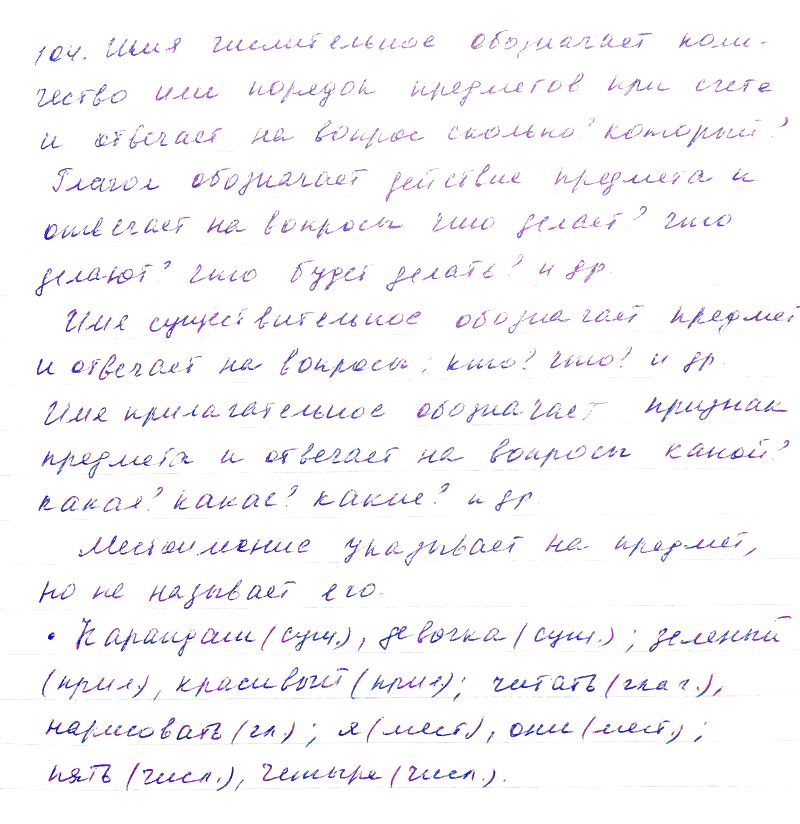 104. Имя числительное обозначает коли-
чество или порядок предметов при счете
и отвечает на вопрос сколько? который?
Глагол обозначает действие предмета и
отвечает на вопросы что делает? что
делают? что будет делать? и др.
Имя существительное обозначает предмет
и отвечает на вопросы: кто? что? и др.
Имя прилагательное обозначает признак
предмета и отвечает на вопросы какой?
какая? какое? какие? и др.
Местоимение указывает на предмет,
но не называет его.
• Карандаш (сущ.), девочка (сущ.); зеленый
(прил), красивый (прил); читать (глаг.),
нарисовать (гл); я (мест), они (мест.);
пять (числ.), четыре (числ.).